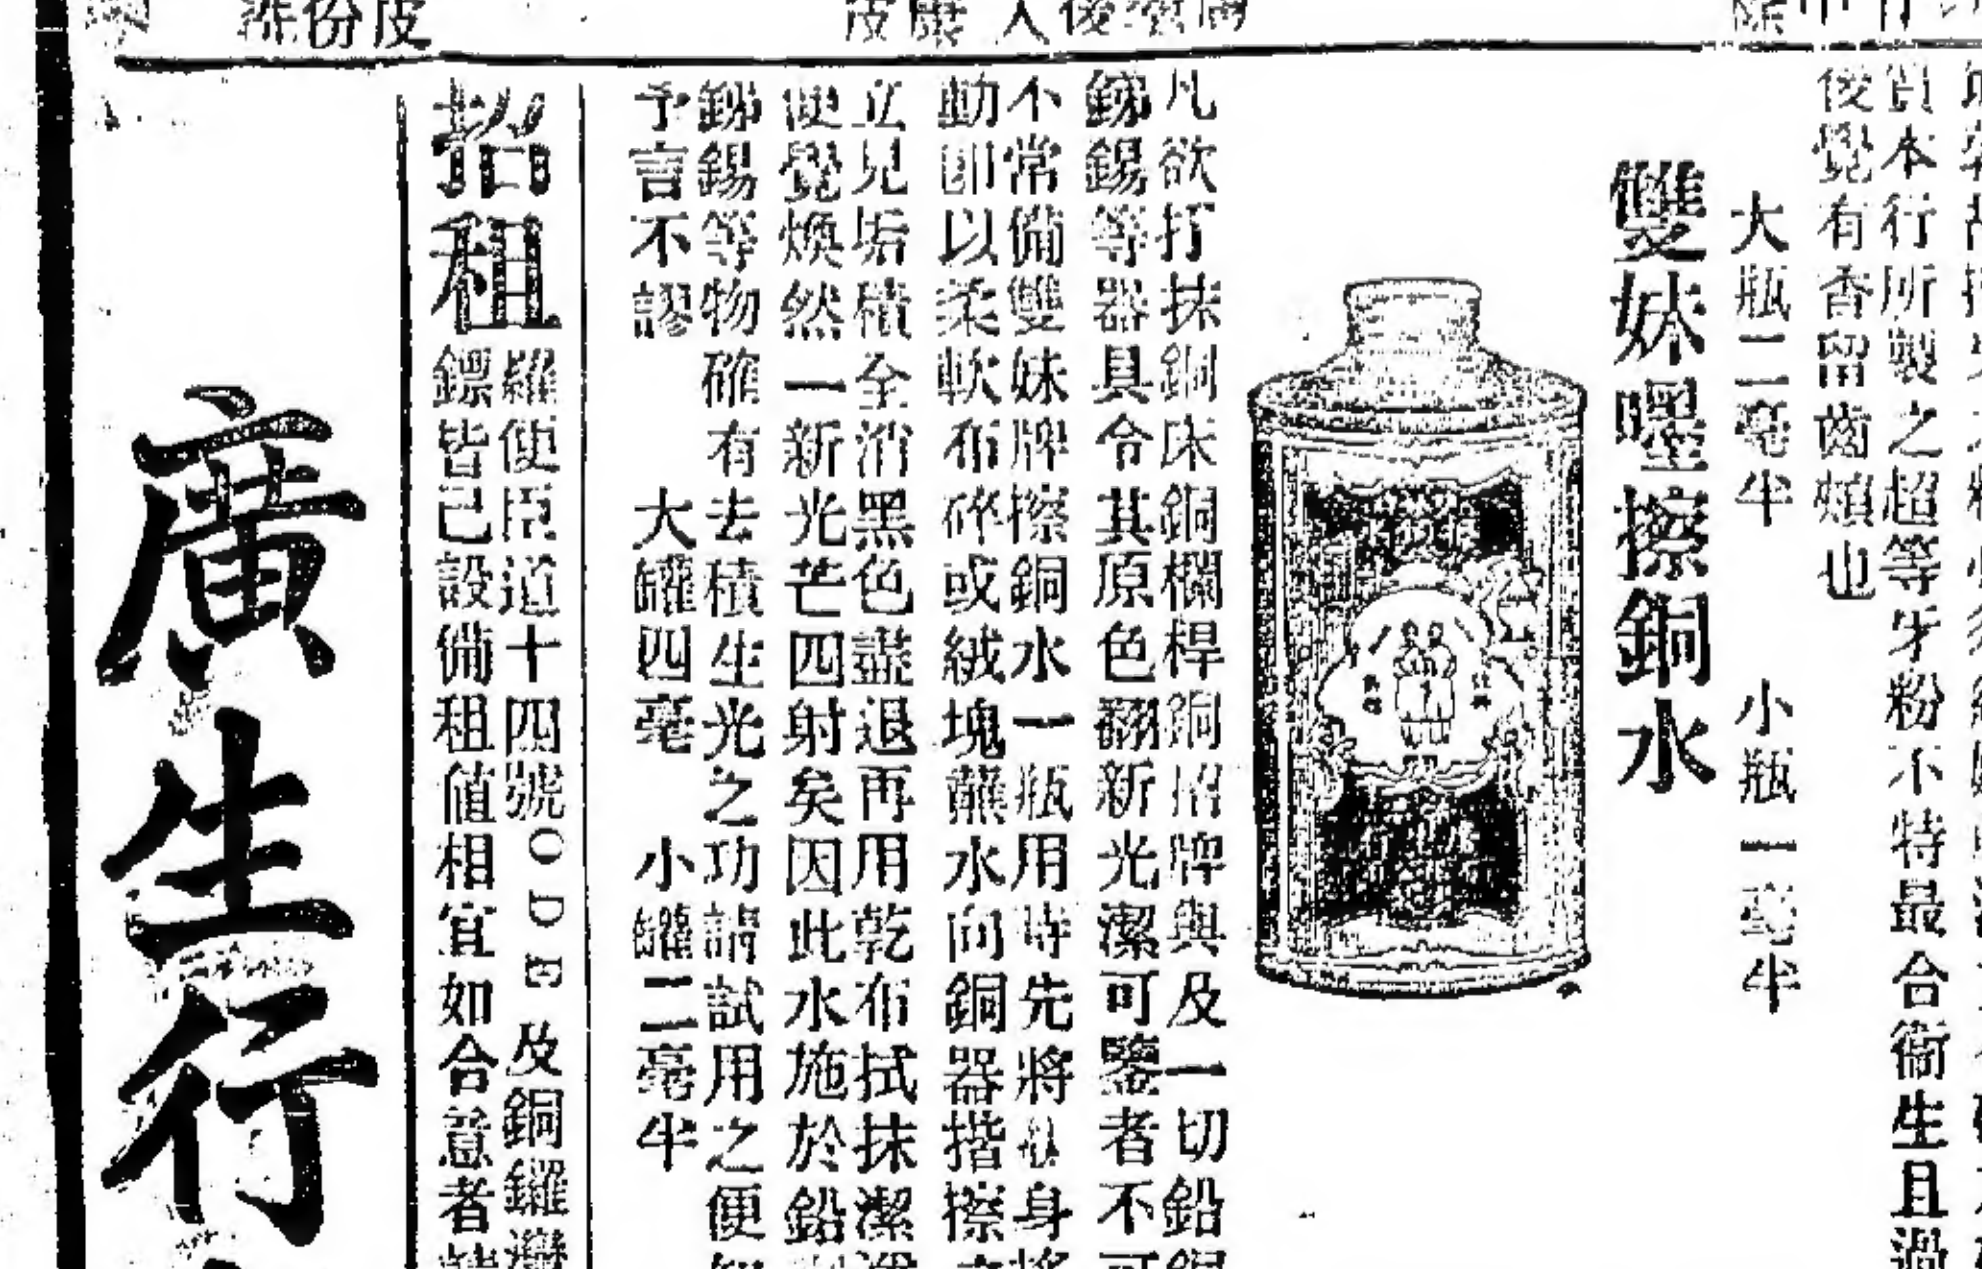 質本行所製之超等牙粉不特最合衞生且過
後覺有香留齒頰也
大瓶二毫半 小瓶一毫半
雙妹嚜擦銅水
凡欲打抹銅床銅欄桿銅招牌與及一切鉛
錫等器具令其原色翻新光潔可鑒者不可
不常備雙妹牌擦銅水一瓶用時先將 身
動即以柔軟布碎或絨塊蘸水向銅器揩擦
立見垢積全消黑色盡退再用乾布拭抹潔
便覺煥然一新光芒四射矣因此水施於鉛
錫等物確有去積生光之功請試用之便知
予言不謬 大罐四毫 小罐二毫半
招租
羅便臣道十四號ODE及銅鑼灣
鏢皆已設備租值相宜如合意者
廣生行